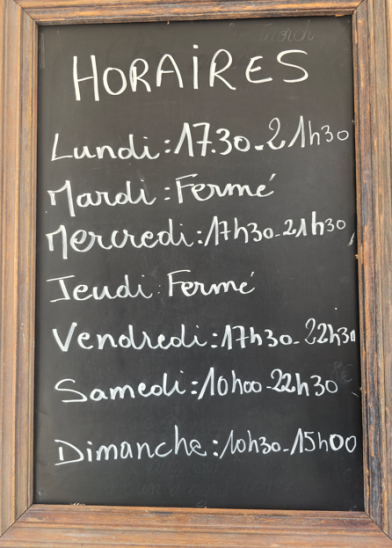 HORAIRES
Lundi : 17.30 - 21h30
Mardi : Fermé
Mercredi : 17h30 - 21h30
Jeudi : Fermé
Vendredi : 17h30 - 22h30
Samedi : 10h00 - 22h30
Dimanche : 10h30 - 15h00